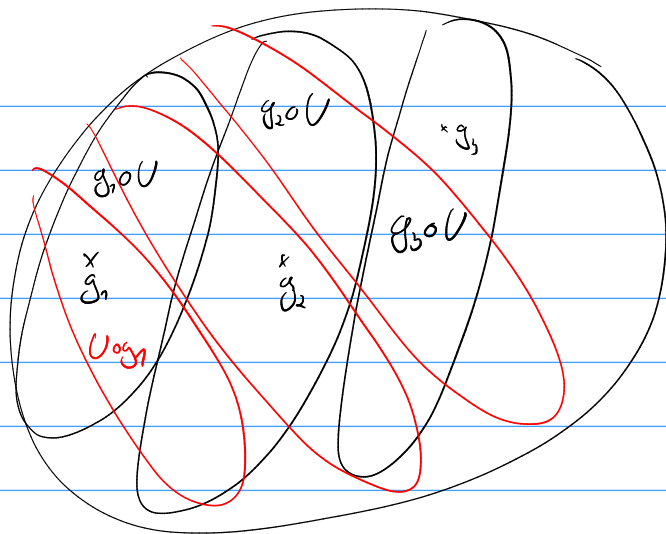 g₂∘U
× g₃
g₁∘U
g₃∘U
×
g₁
×
g₂
U∘g₁